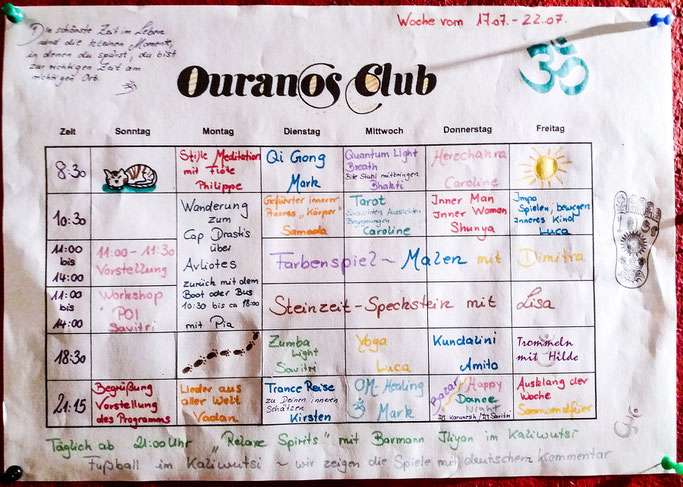 Woche vom 17.07.-22.07.
Die schönste Zeit im Leben
sind die kleinen Momente,
in denen du spürst, du bist
zur richtigen Zeit am
richtigen Ort.
ॐ
Ouranos Club
ॐ
Zeit Sonntag Montag Dienstag Mittwoch Donnerstag Freitag
8:30
Stille Meditation
mit Flöte
Philippe
Qi Gong
Mark
Quantum Light
Breath
Bitte Stuhl mitbringen
Bhakti
Herzchakra
Caroline
10:30
Wanderung
zum
Cap Drastis
über
Avliotes
zurück mit dem
Boot oder Bus
10:30 bis ca 18:00
mit Pia
Geführter innerer
Prozess "Körper"
Samada
Tarot
Caroline
Inner Man
Inner Woman
Shunya
Impro
Spielen, bewegen
Inneres Kind
Luca
11:00
bis
14:00
11:00-11:30
Vorstellung
Farbenspiel ~ Malen mit Dimitra
11:00
bis
14:00
Workshop
POI
Savitri
Steinzeit-Speckstein mit Lisa
18:30
Zumba
Light
Savitri
Yoga
Luca
Kundalini
Amito
Trommeln
mit Hilde
21:15
Begrüßung
Vorstellung
des Programms
Lieder aus
aller Welt
Vadan
Trance Reise
zu Deinen inneren
Schätzen
Kirsten
OM Healing
ॐ
Mark
Bazar
Happy
Dance
Night
Ausklang der
Woche
Sonnwendfeier
Täglich ab 21:00 Uhr "Relaxe Spirits" mit Barmann Iliyan im Kaliwutsi
Fußball im Kaliwutsi ~ wir zeigen die Spiele mit deutschem Kommentar